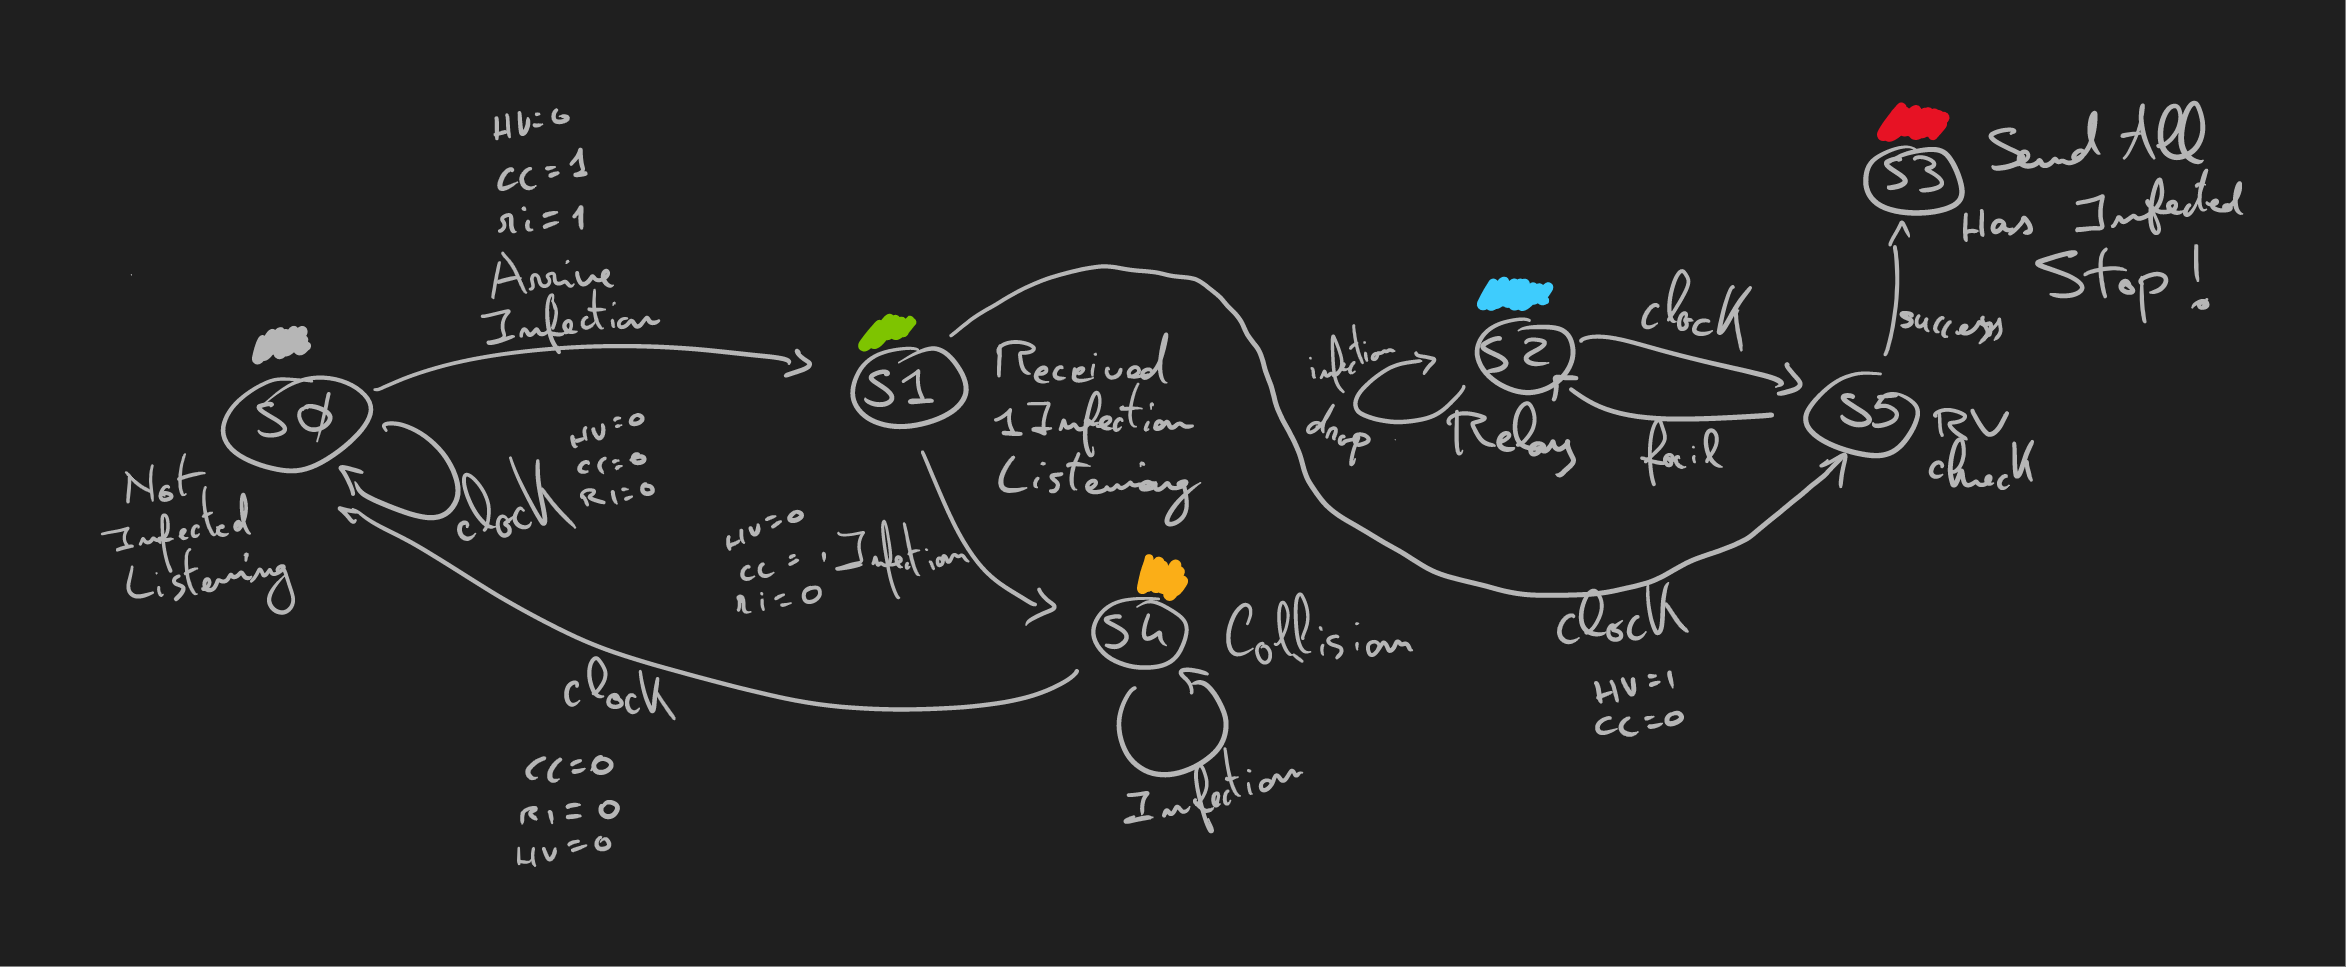 HV=0
CC=1
ri=1
Arrive
Infection
S0
Not
Infected
Listening
clock
HV=0
CC=0
RI=0
S1
Received
1 Infection
Listening
HV=0
CC=
ri=0
Infection
S4
Collision
Infection
clock
CC=0
RI=0
HV=0
infection
drop
S2
Relay
clock
fail
S5
RV
check
clock
HV=1
CC=0
success
S3
Send All
Has Infected
Stop!